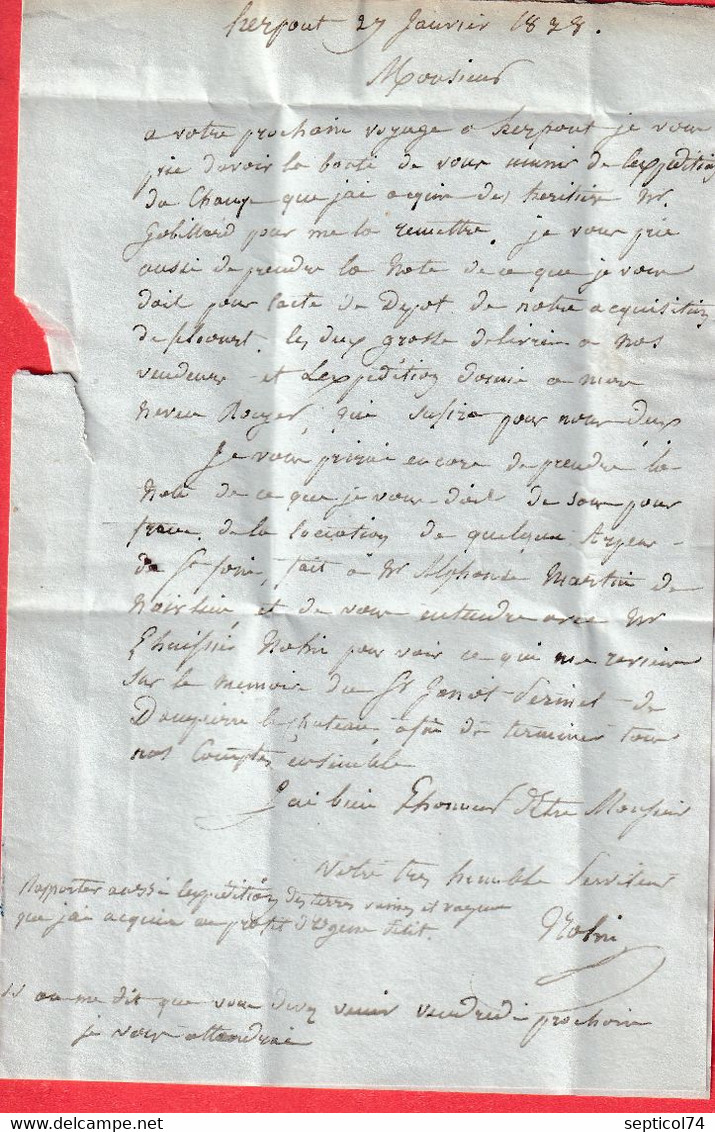 herpont 27 Janvier 1828.
Monsieur
a votre prochain voyage a herpont je vous
prie davoir la bonté de vous munir de lexpédition
du Change que jai acquise des heritiers Mr
Gobillard pour me la remettre. je vous prie
aussi de prendre la Note de ce que je vous
doit pour lacte de Depot de notre acquisition
de les deux grosse delivrée a nos
vendeurs et Lexpédition donné a mon
neveu Royer, qui sufira pour nous deux
Je vous prirai encore de prendre la
Note de ce que je vous doit de pour
de la location de quelque
de fait à Mr Alphonse Martin de
et de vous entendre avec Mr
pour voir ce qui me revien
sur le memoire du Sr de
Dampierre le chateau afin de terminer tous
nos Comptes ensemble
J'ai bien Lhonneur dEtre Monsieur
Votre tres humble Serviteur
Rapporter aussi lexpédition des terres vaines et vagues
que jai acquise au profit d'Ugene Petit.
on me dit que vous devez venir vendredi prochain
je vous attendrai
septicol74